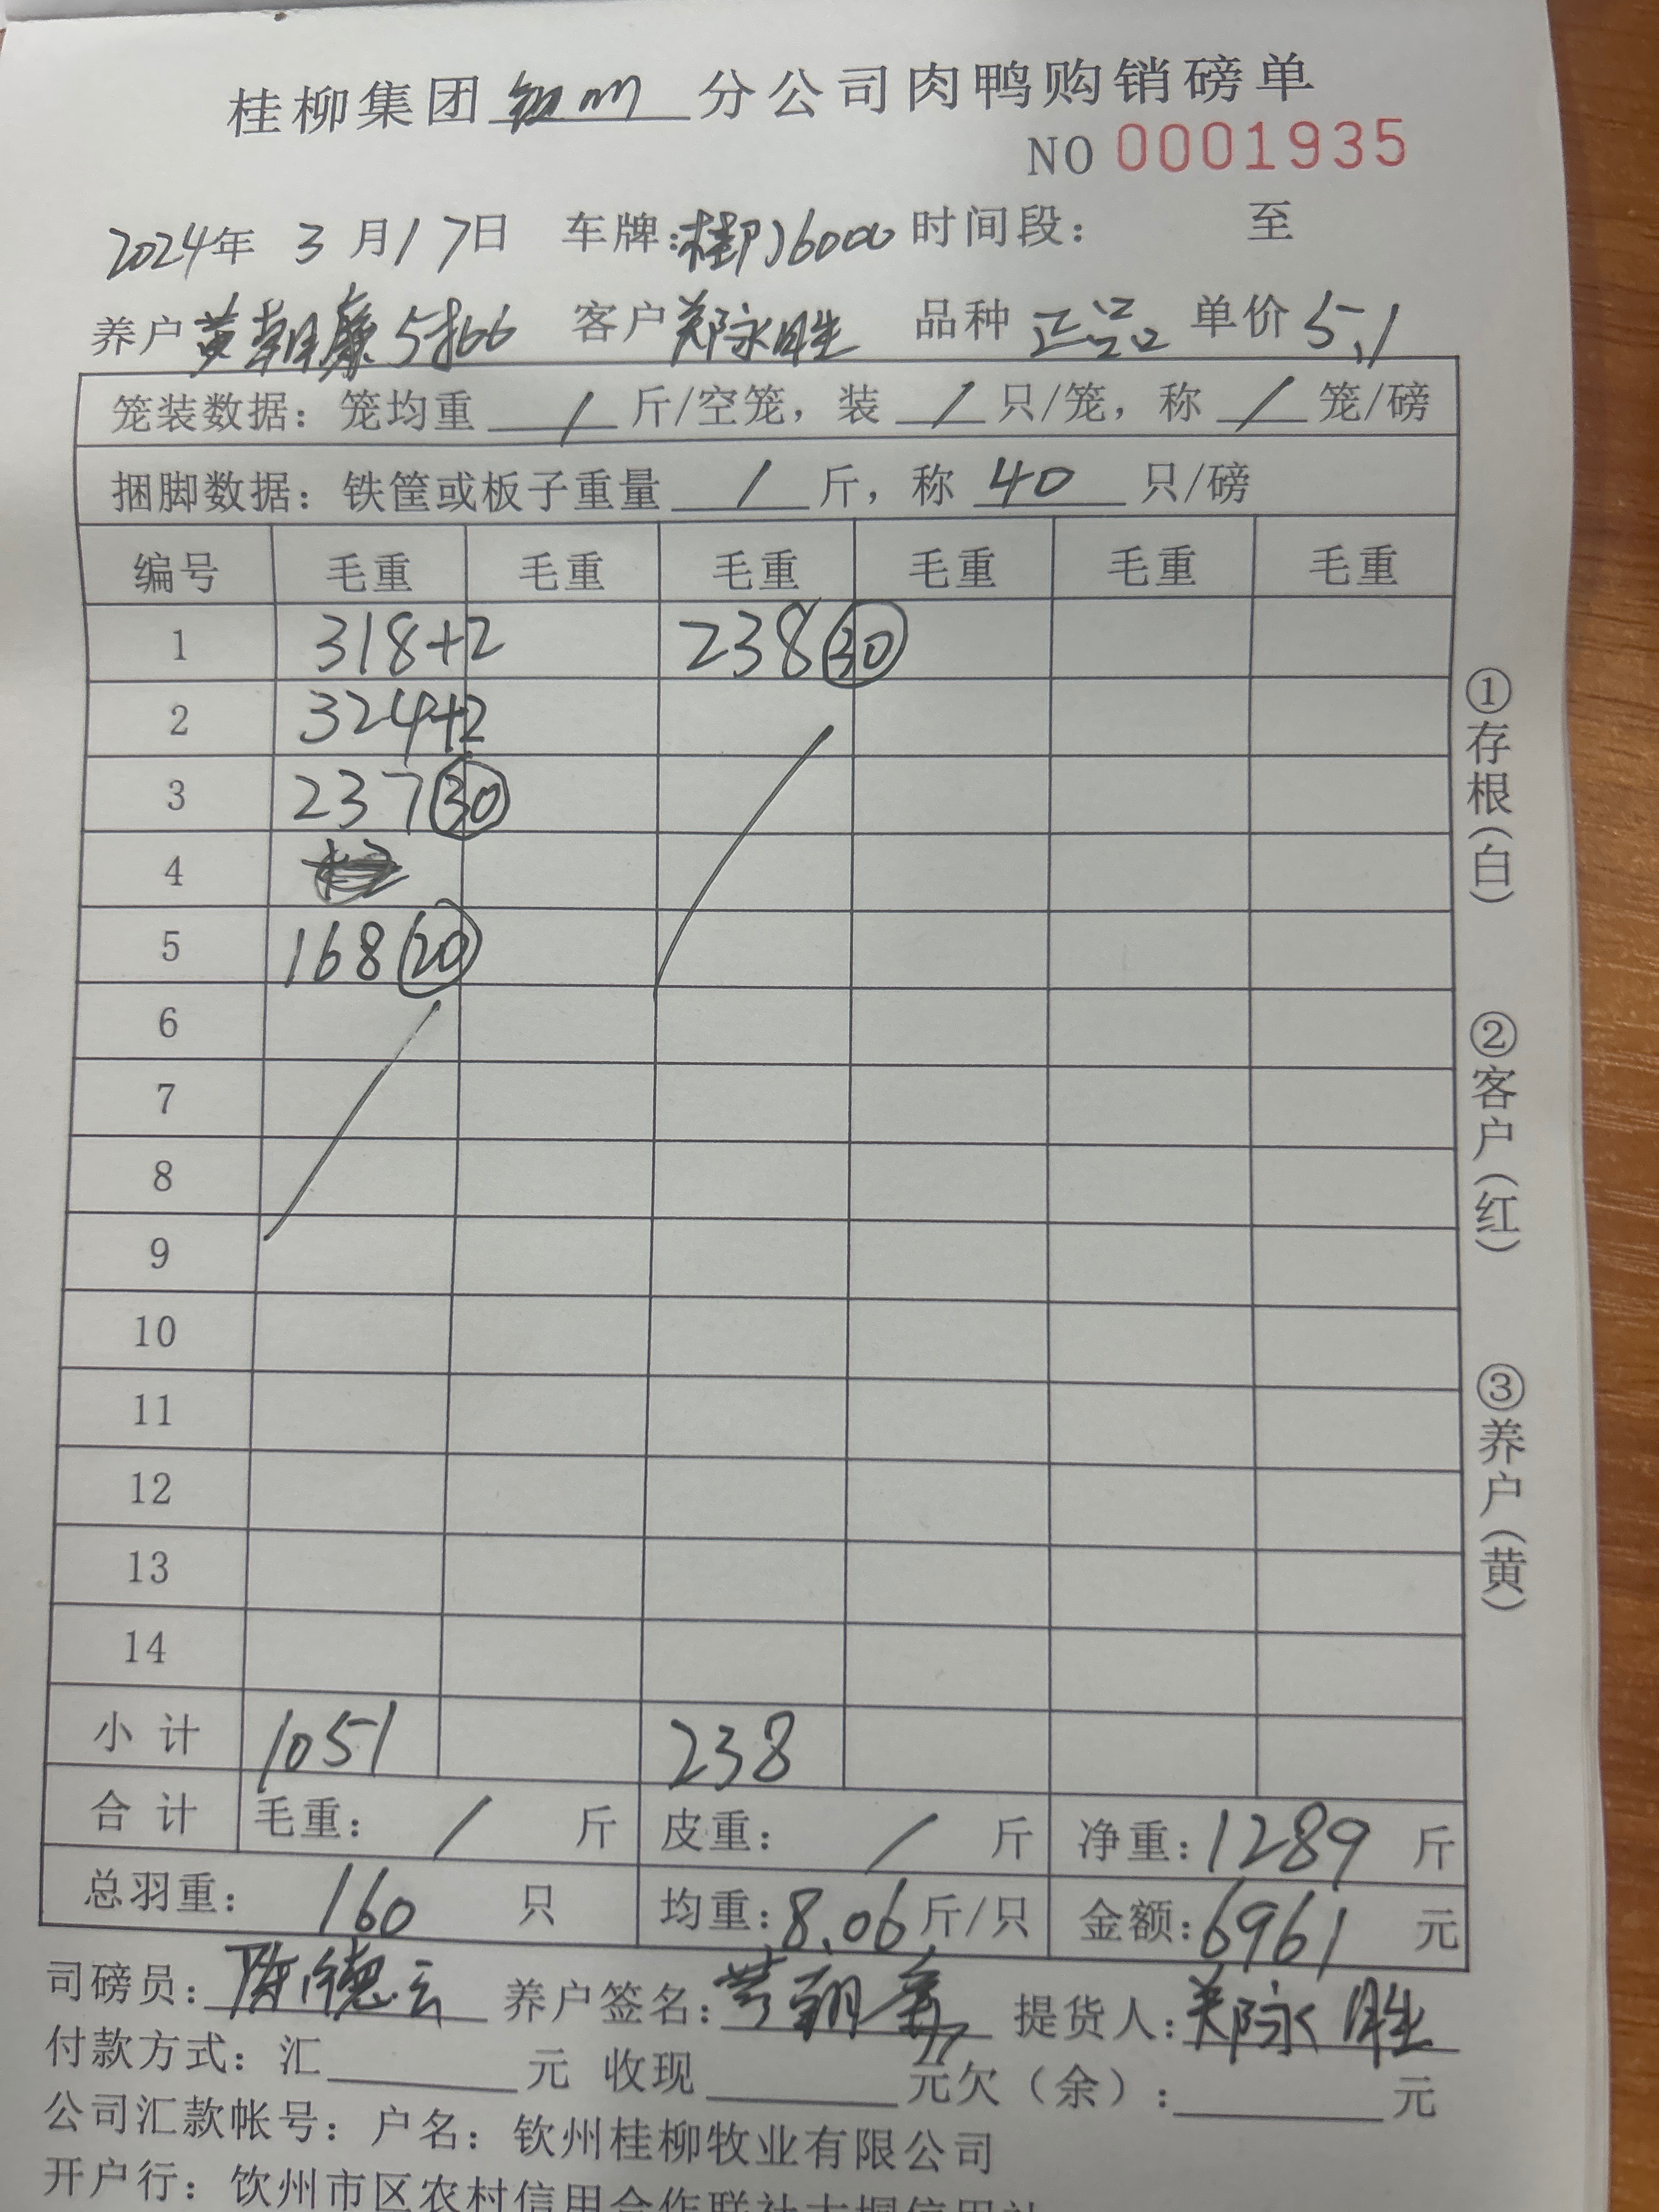 桂柳集团 钦州 分公司肉鸭购销磅单
NO 0001935
2024年 3 月 17日 车牌: 桂 J6000 时间段: 至
养户 黄朝廉 5批66 客户 郑永胜 品种 正品 单价 5.1
笼装数据: 笼均重 / 斤/空笼, 装 / 只/笼, 称 / 笼/磅
捆脚数据: 铁筐或板子重量 / 斤, 称 40 只/磅
编号 毛重 毛重 毛重 毛重 毛重 毛重
1 318+2 238 ㉚
2 324+2
3 237 ㉚
4
5 168 ⑳
6
7
8
9
10
11
12
13
14
小 计 1051 238
合 计 毛重: / 斤 皮重: / 斤 净重: 1289 斤
总羽重: 160 只 均重: 8.06 斤/只 金额: 6961 元
司磅员: 陈德云 养户签名: 黄朝廉 提货人: 郑永胜
付款方式: 汇 元 收现 元欠(余): 元
公司汇款帐号: 户名: 钦州桂柳牧业有限公司
开户行: 钦州市区农村信用合作联社大垌信用社
①存根(白)
②客户(红)
③养户(黄)